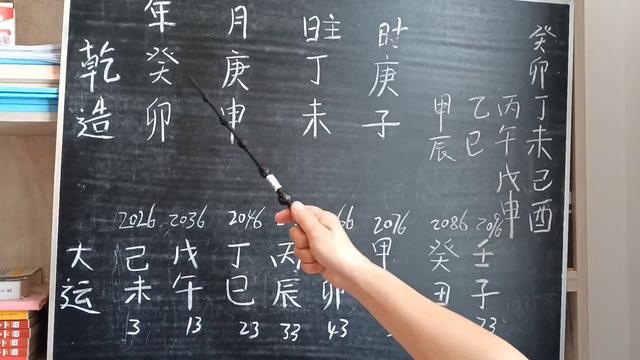 年 月 日主 时
乾造 癸卯 庚申 丁未 庚子
甲辰 乙巳 丙午 丁未 戊申 己酉
癸卯
2026 2036 2046 2076 2086 2096
大运 己未 戊午 丁巳 丙辰 卯 甲 癸丑 壬子
3 13 23 33 43